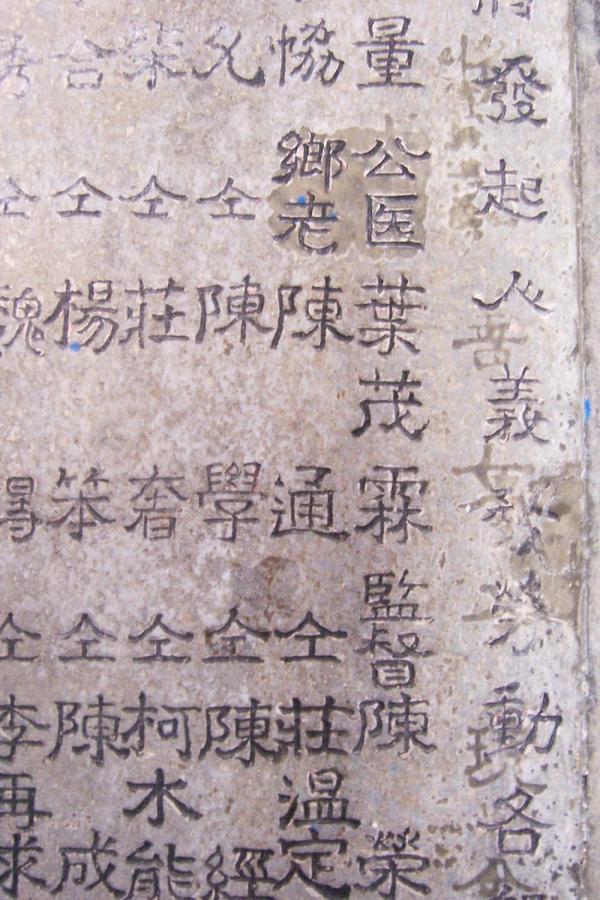 發起人義務勞動各
量公医葉茂霖監督陳榮
協鄉老陳通仝莊温定
允仝陳學仝陳經
柴仝莊奢仝柯水能
合仝楊笨仝陳成
仝魏得仝李再求